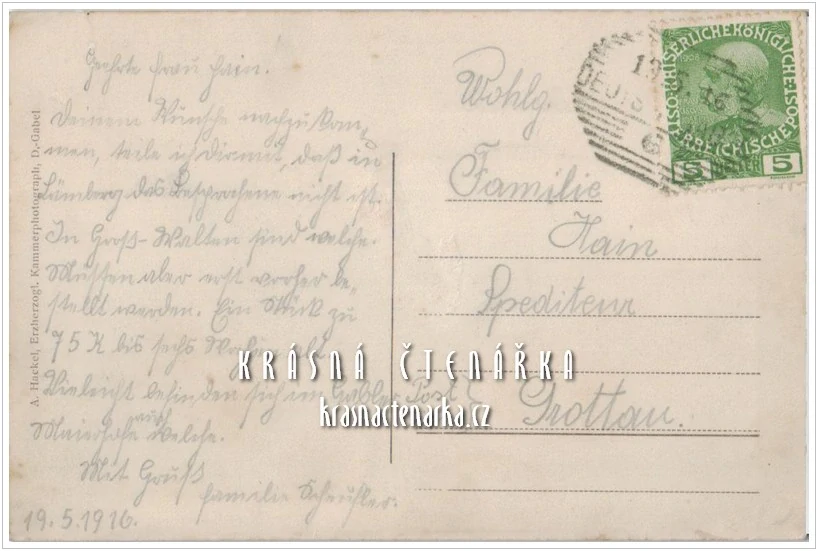 Geehrte Frau Hain.
Deinem Wunsche nachzukom-
men, teile ich dir mit, daß in
Lämberg das Besprochene nicht ist.
In Groß-Walten sind welche.
Müssen aber erst vorher be-
stellt werden. Ein Stück zu
75 K bis sechs Wochen alt.
Vieleicht befinden sich im Gabler
auch
Maierhofe welche.
Mit Gruß
Familie Scheufler.
19.5.1916.
A. Hackel, Erzherzogl. Kammerphotograph, D.-Gabel
Wohlg.
Familie
Hain
Spediteur
Post
Grottau.
KAISERLICHEKÖNIGLICHE
ÖSTERREICHISCHEPOST
1908
5 5
KRÁSNÁ ČTENÁŘKA
krasnactenarka.cz